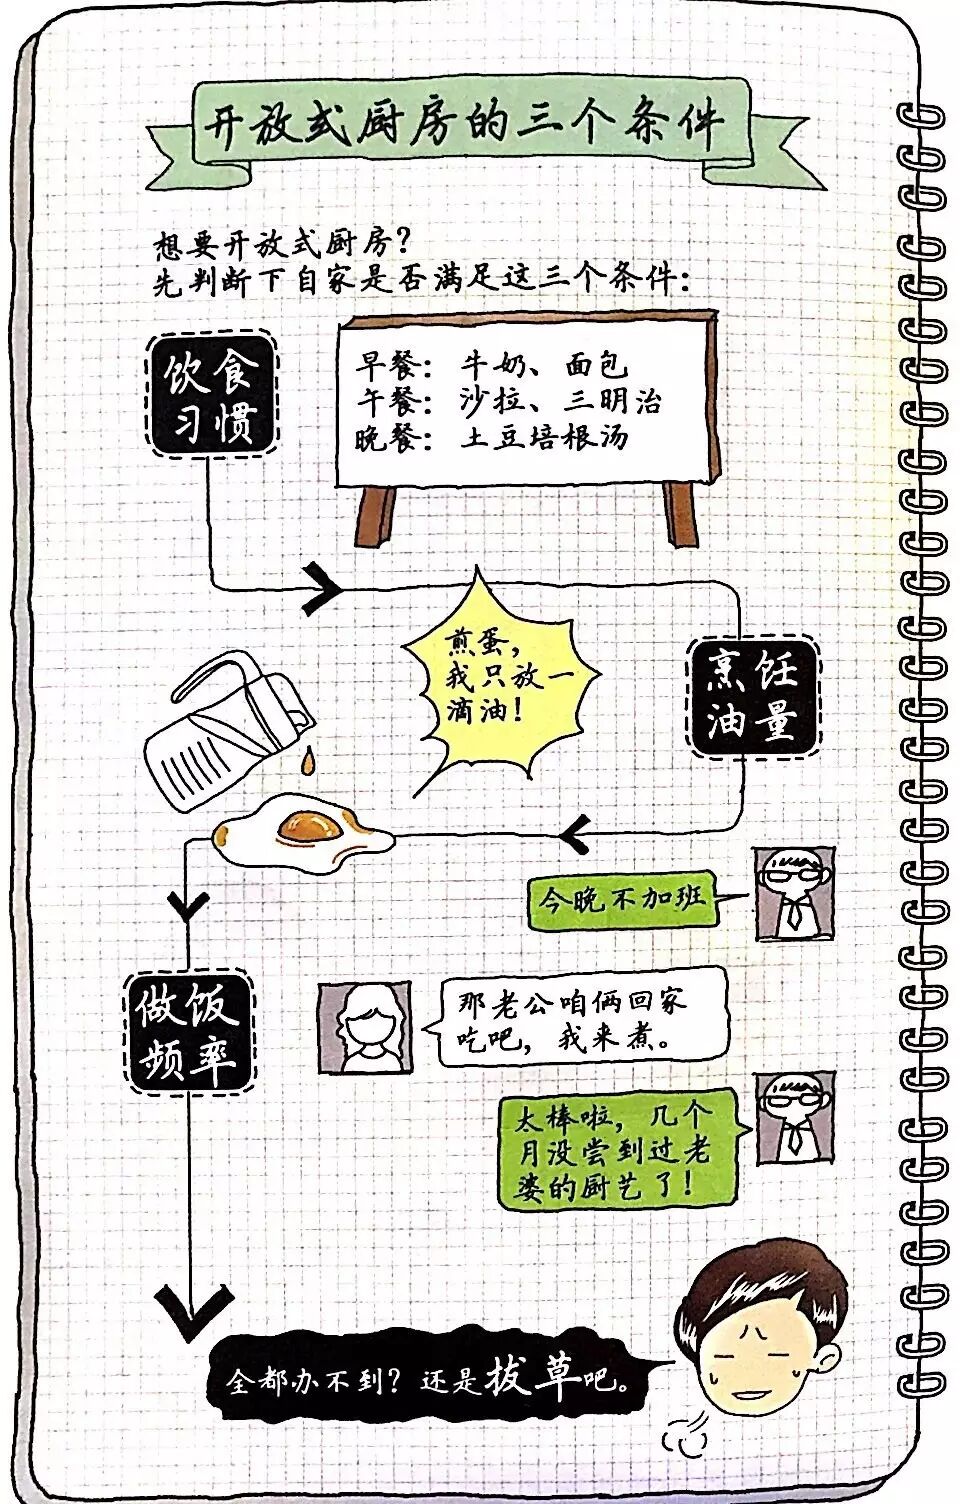 开放式厨房的三个条件
想要开放式厨房?
先判断下自家是否满足这三个条件:
饮食
习惯
早餐: 牛奶、面包
午餐: 沙拉、三明治
晚餐: 土豆培根汤
煎蛋,
我只放一
滴油!
烹饪
油量
今晚不加班
做饭
频率
那老公咱俩回家
吃吧, 我来煮。
太棒啦, 几个
月没尝到过老
婆的厨艺了!
全都办不到? 还是拔草吧。